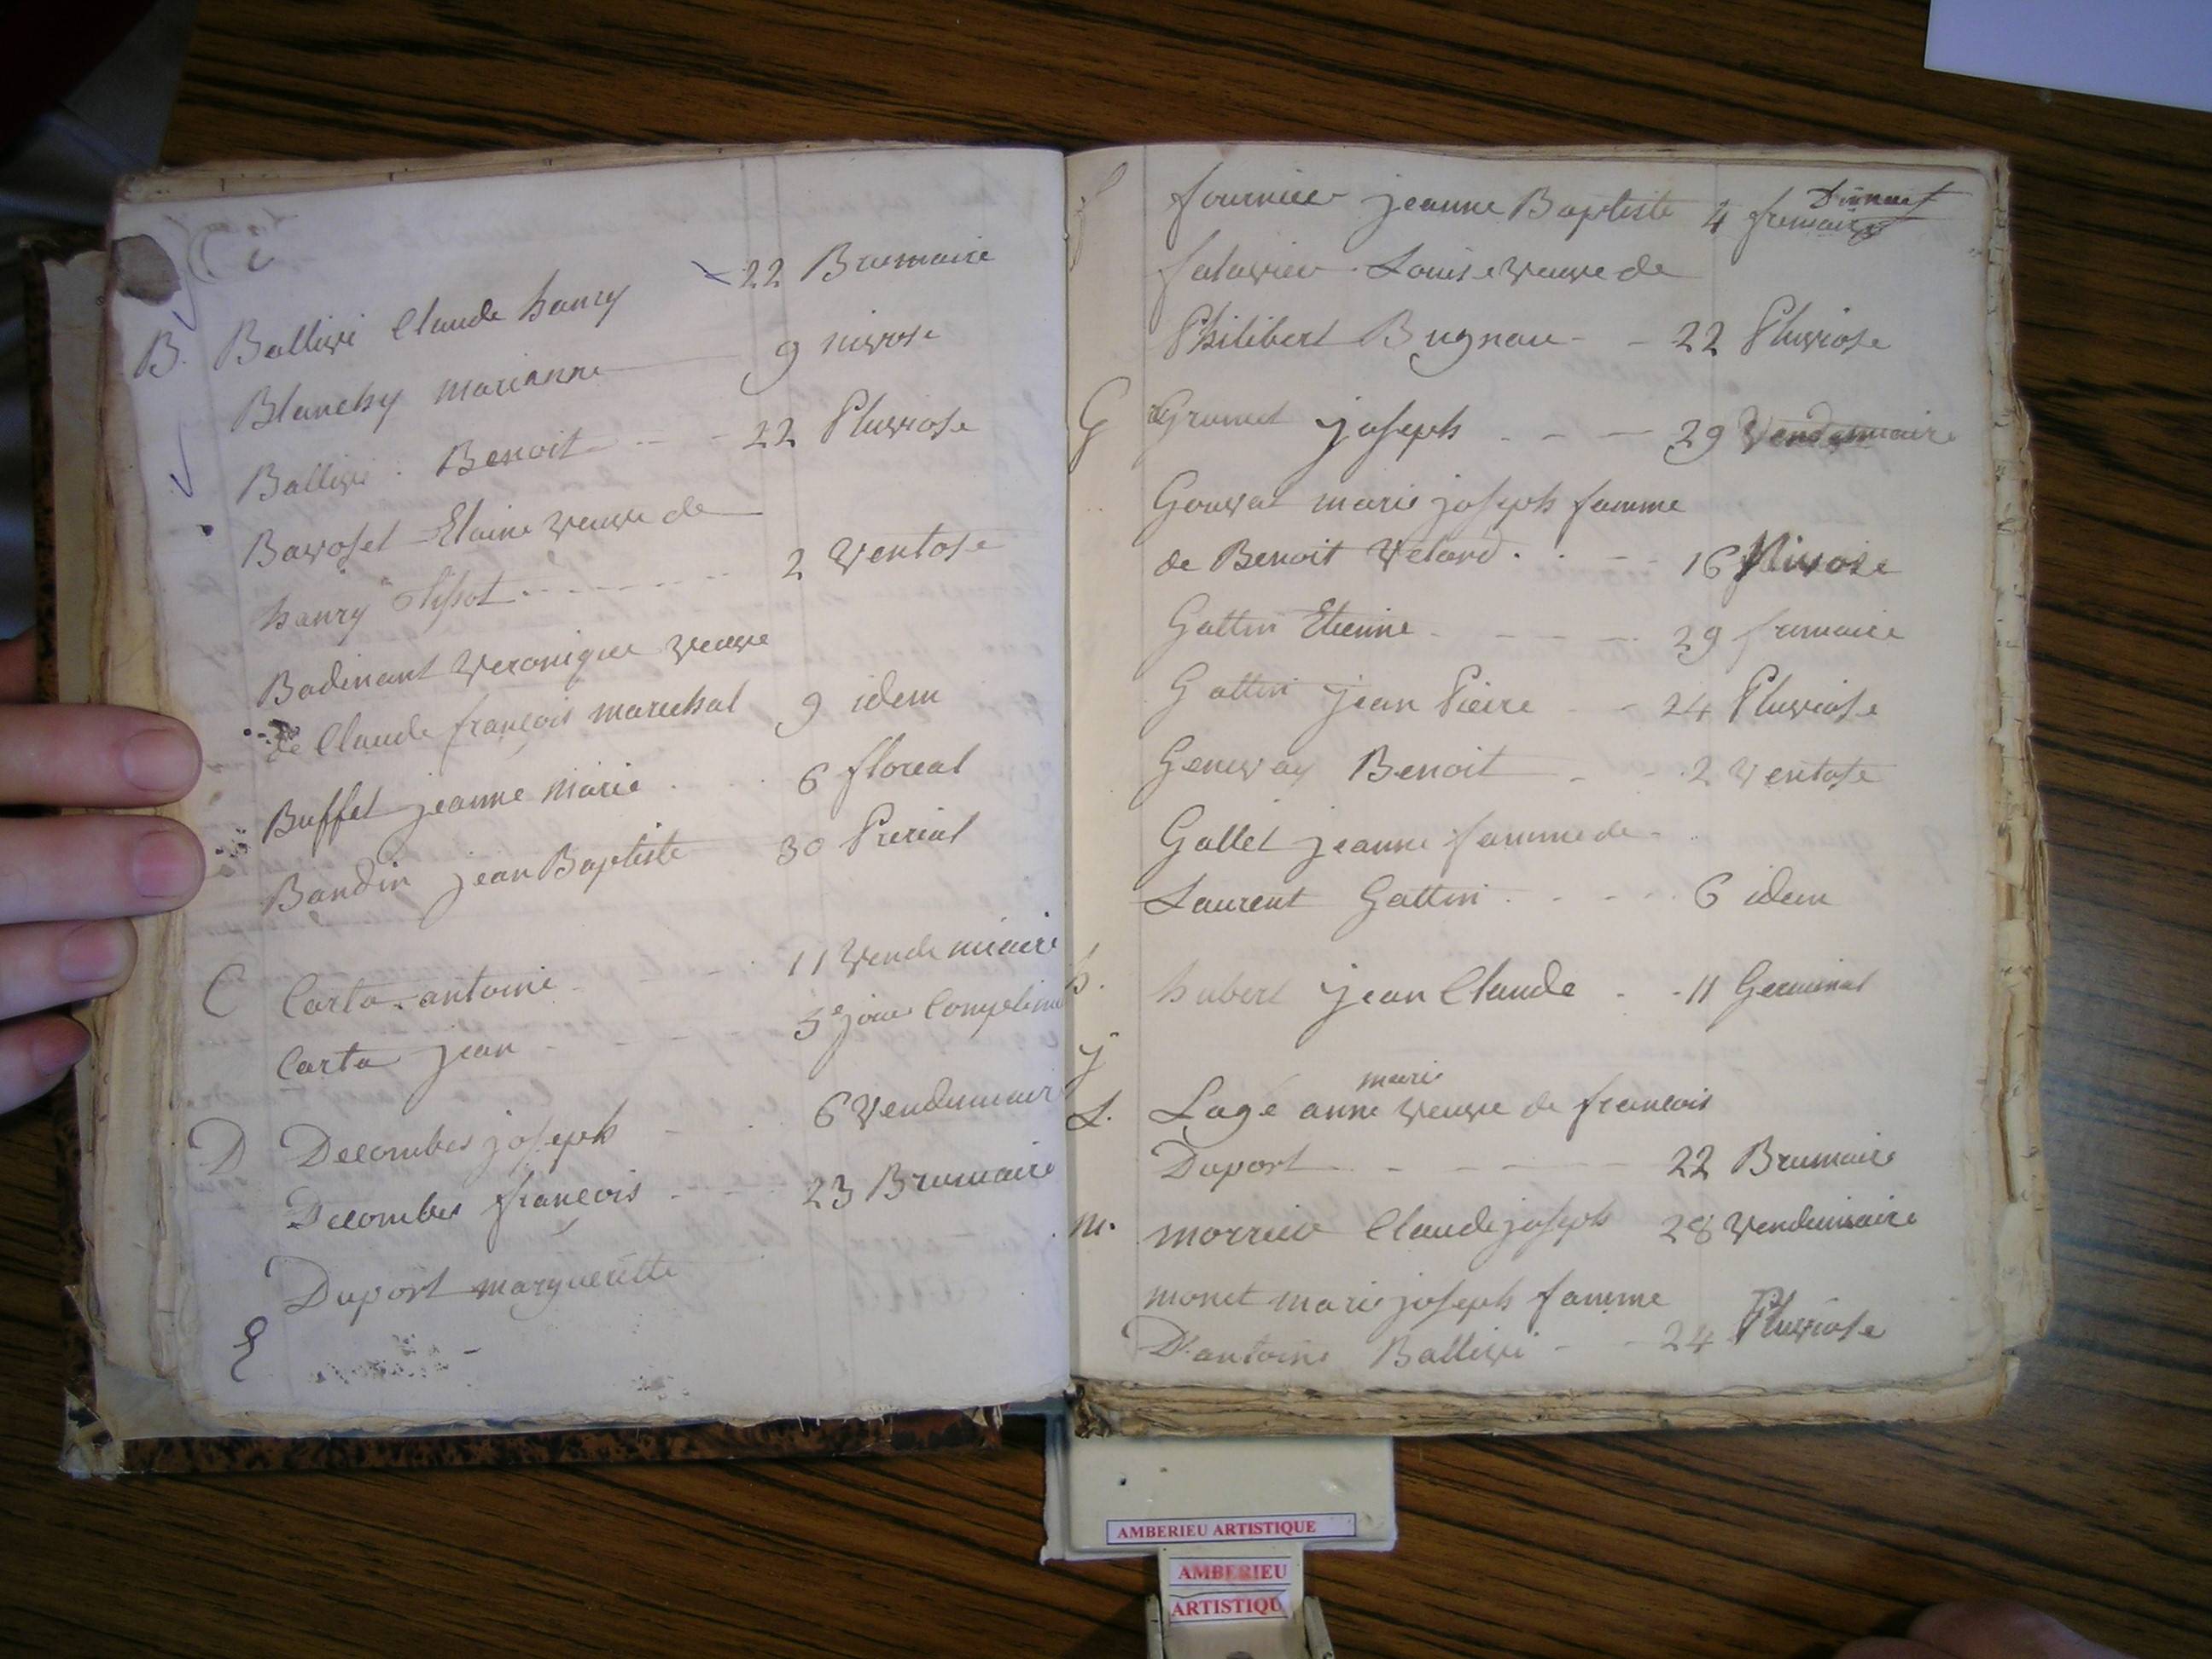 B. Ballivi Claude hanry 22 Brumaire
Blanchy marianne 9 nivose
Ballivi Benoit 22 Pluviose
Bavoset Elaine veuve de
hanry tissot 2 Ventose
Badinant Veronique veuve
de Claude françois marechal 9 idem
Buffet jeanne Marie 6 floreal
Baudin jean Baptiste 30 Prerial
C Carta antoine 11 Vendemiaire
Carta jean 5e jour
D Decombes joseph 6 Vendemiair
Decombes françois 23 Brumaire
Duport margueritte
E
f fournier jeanne Baptiste 4 frimaire
Louise veuve de
Philibert Bugnau 22 Pluviose
G Grumet joseph 29 Vendemiaire
Gouvat marie joseph famme
de Benoit Velard 16 Nivose
Gattin Etienne 29 frimaire
Gattin jean Pierre 24 Pluviose
Genevay Benoit 2 Ventose
Gallet jeanne famme de
Laurent Gattin 6 idem
h. hubert jean Claude 11 Germinal
J
marie
L. Lage anne veuve de francois
Duport 22 Brumaire
m. morrier Claude joseph 28 Vendemiaire
monet marie joseph famme
D'antoine Ballivi 24 Pluviose
AMBERIEU ARTISTIQUE
AMBERIEU
ARTISTIQU